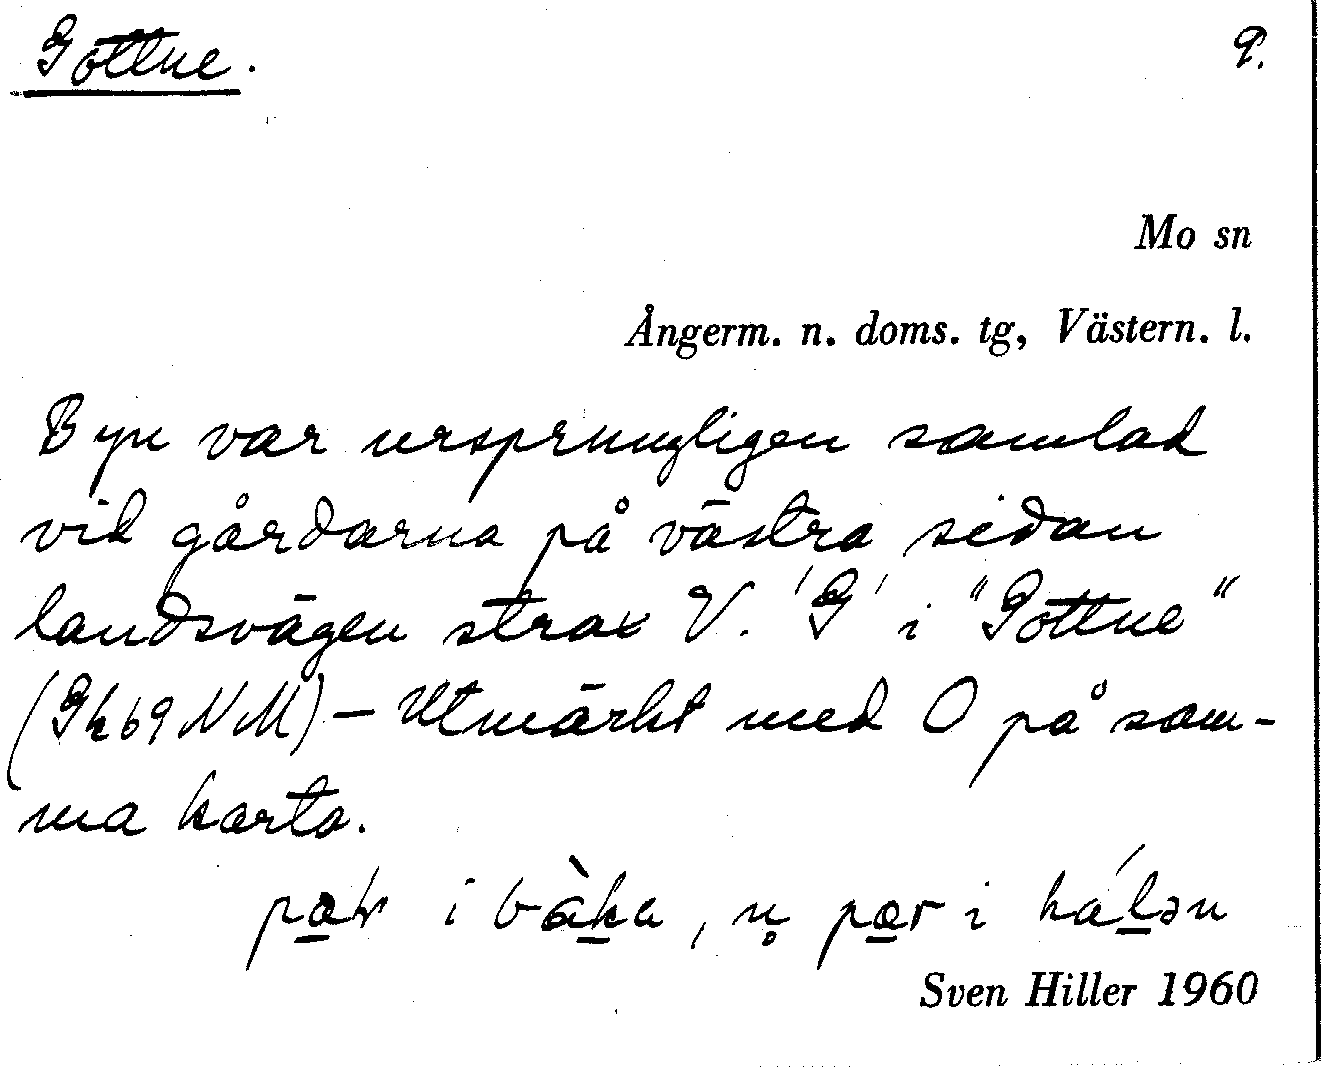 Gottne. 9.
Mo sn
Ångerm. n. doms. tg, Västern. l.
Byn var ursprungligen samlad
vid gårdarna på västra sidan
landsvägen strax V. 'G' i "Gottne"
(Gk 69 NM) – Utmärkt med O på sam-
ma karta.
i , n̥ pær i
Sven Hiller 1960